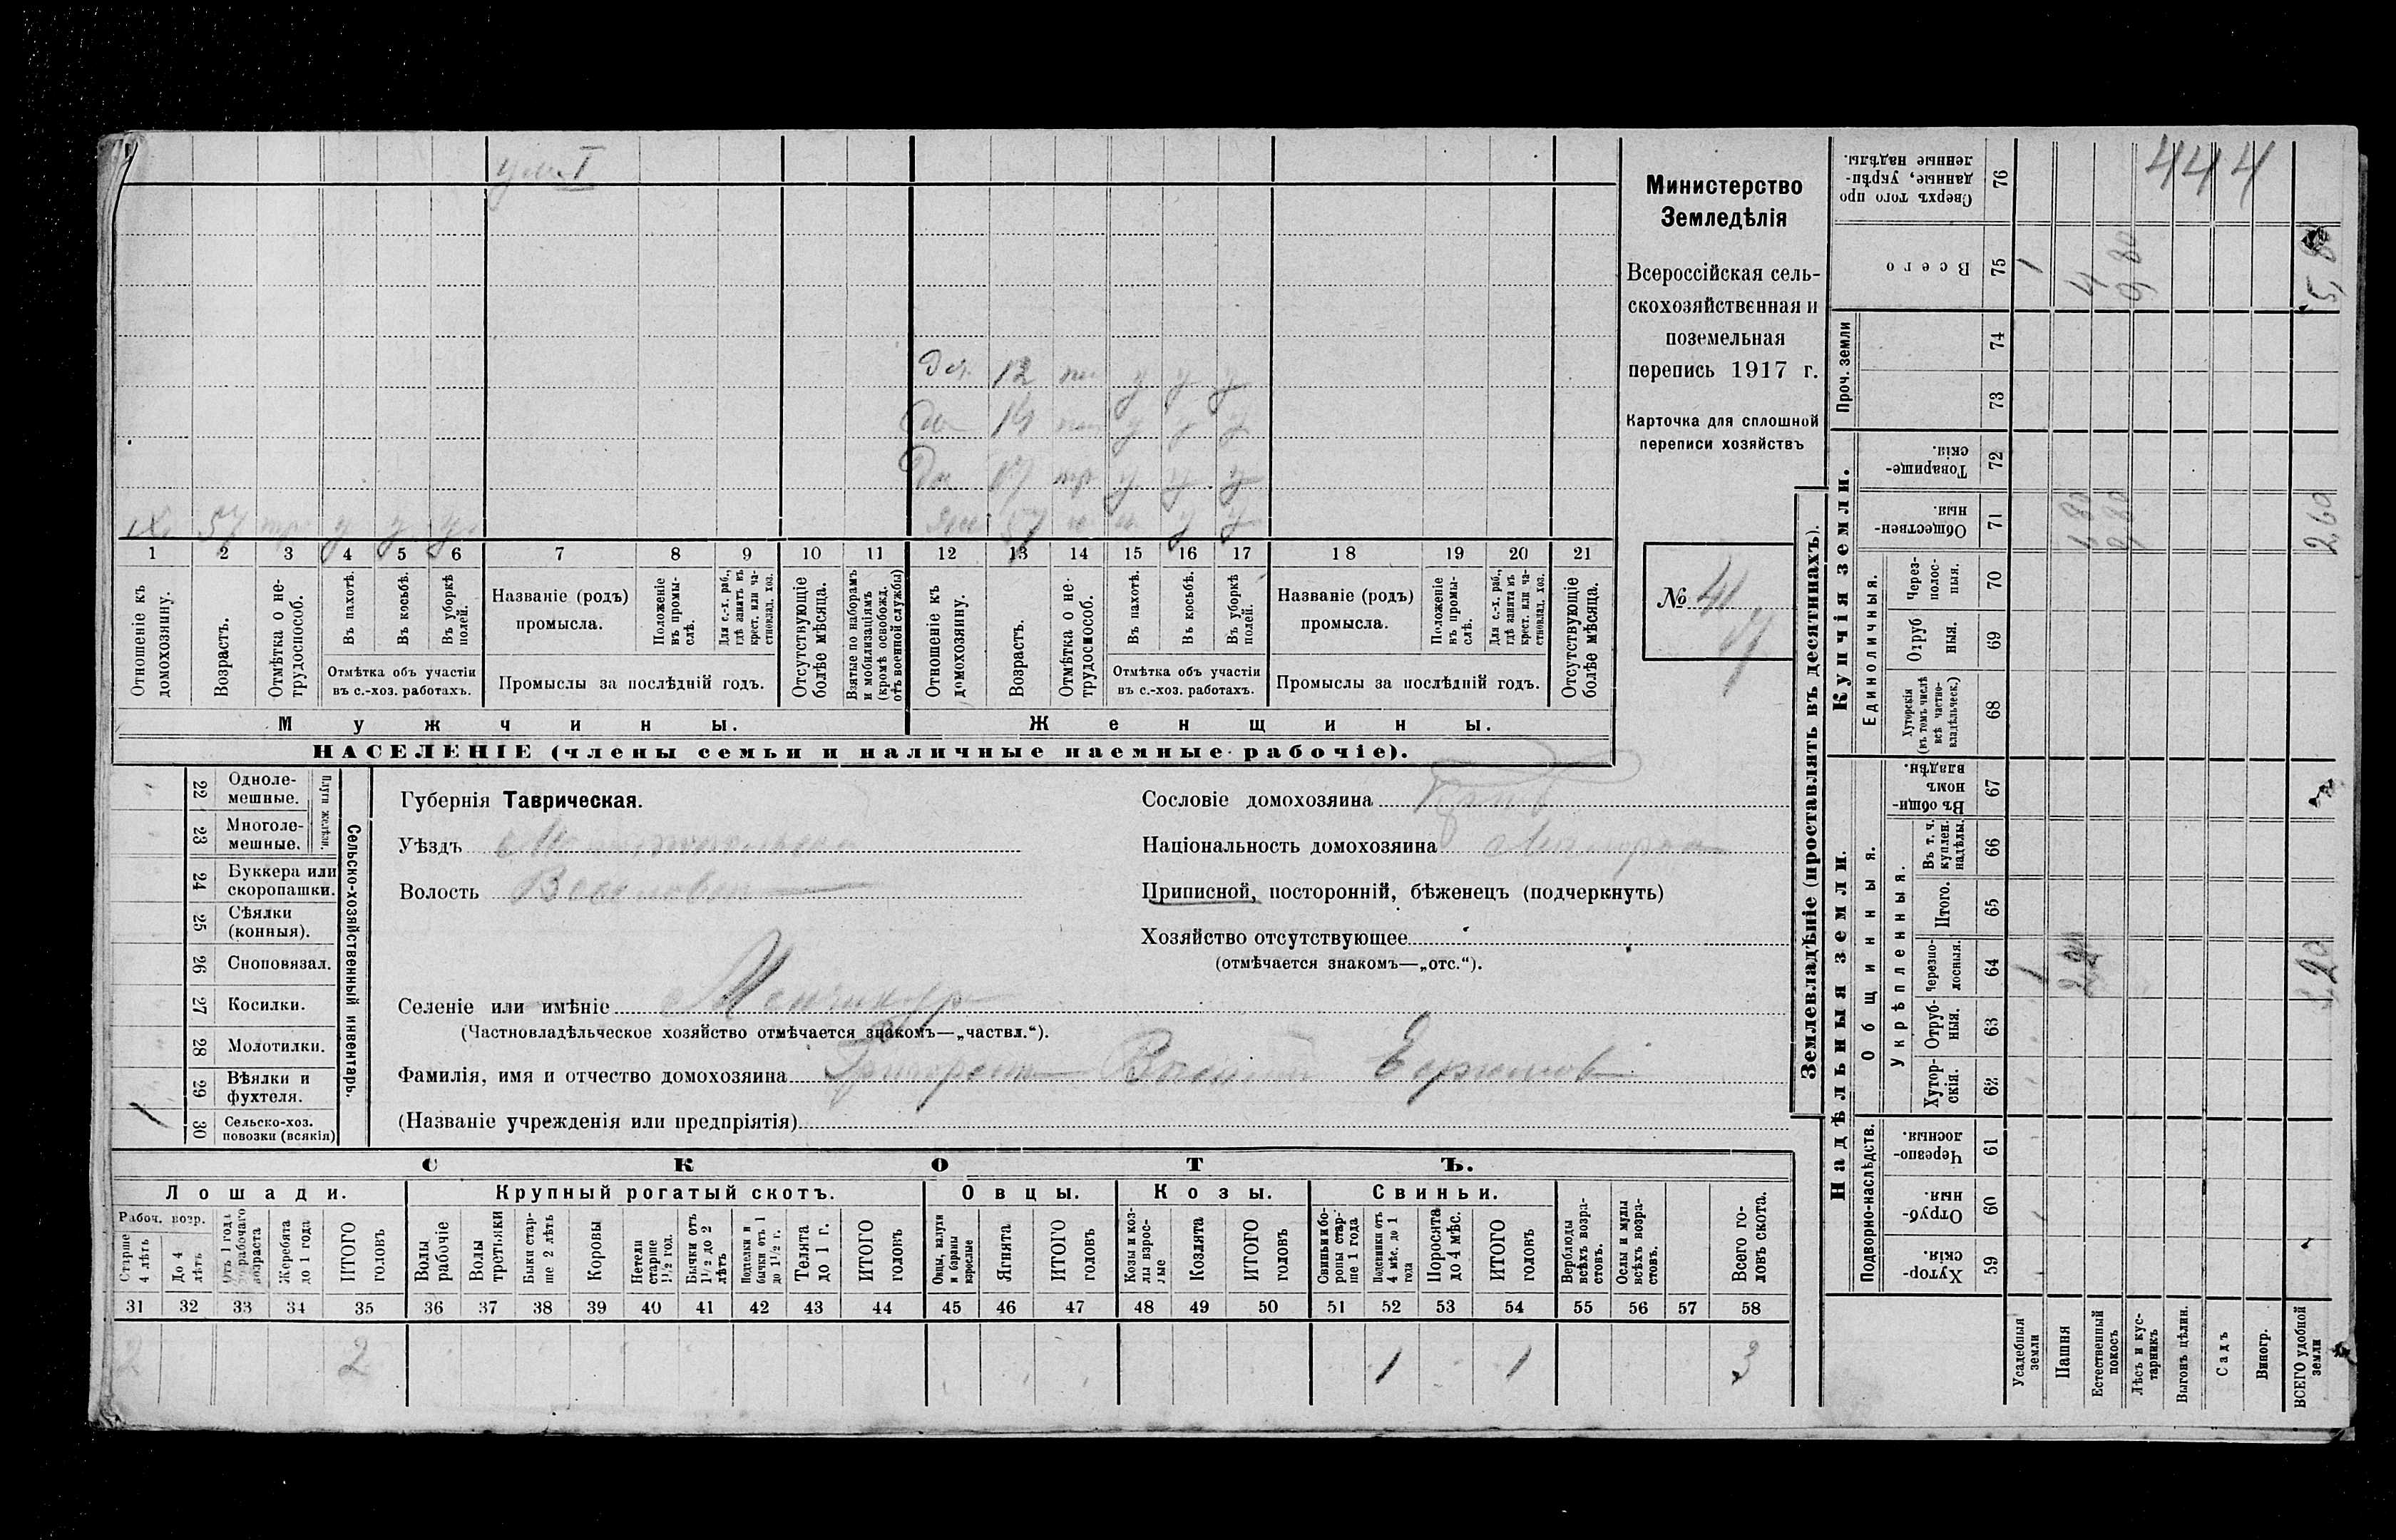 уч. I
Министерство
Земледѣлія
Всероссійская сель-
скохозяйственная и
поземельная
перепись 1917 г.
Карточка для сплошной
переписи хозяйствъ
№ 41
До. 12 у у у
До 14 у у у
До 17 у у у
Х. 57 у у у
57 у у
1 2 3 4 5 6 7 8 9 10 11 12 13 14 15 16 17 18 19 20 21
Отношеніе къ домохозяину.
Возрастъ.
Отмѣтка о не-трудоспособ.
Въ пахотѣ.
Въ косьбѣ.
Въ уборкѣ полей.
Отмѣтка объ участіи
въ с.-хоз. работахъ.
Названіе (родъ)
промысла.
Положеніе въ промы-слѣ.
Для с.-х. раб., гдѣ занятъ въ крест. или ча-стновлад. хоз.
Промыслы за послѣдній годъ.
Отсутствующіе болѣе мѣсяца.
Взятые по наборамъ и мобилизаціямъ (кромѣ освобожд. отъ военной службы)
Отношеніе къ домохозяину.
Возрастъ.
Отмѣтка о не-трудоспособ.
Въ пахотѣ.
Въ косьбѣ.
Въ уборкѣ полей.
Отмѣтка объ участіи
въ с.-хоз. работахъ.
Названіе (родъ)
промысла.
Положеніе въ промы-слѣ.
Для с.-х. раб., гдѣ занята въ крест. или ча-стновлад. хоз.
Промыслы за послѣдній годъ.
Отсутствующіе болѣе мѣсяца.
Мужчины.
Женщины.
НАСЕЛЕНІЕ (члены семьи и наличные наемные рабочіе).
22 Одноле-мешные.
23 Многоле-мешные.
Плуги желѣзн.
24 Буккера или скоропашки.
25 Сѣялки (конныя).
26 Сноповязал.
27 Косилки.
28 Молотилки.
29 Вѣялки и фухтеля.
1 30 Сельско-хоз. повозки (всякія)
Сельско-хозяйственный инвентарь.
Губернія Таврическая.
Уѣздъ Мелитопольскій
Волость Веселовск
Сословіе домохозяина
Національность домохозяина Малоросс
Приписной, посторонній, бѣженецъ (подчеркнуть)
Хозяйство отсутствующее
(отмѣчается знакомъ—„отс.“).
Селеніе или имѣніе Менчикур
(Частновладѣльческое хозяйство отмѣчается знакомъ—„частвл.“).
Фамилія, имя и отчество домохозяина Григоренко
(Названіе учрежденія или предпріятія)
СКОТЪ.
Лошади. Крупный рогатый скотъ. Овцы. Козы. Свиньи.
Рабоч. возр.
Старше 4 лѣтъ
До 4 лѣтъ
Отъ 1 года до рабочаго возраста
Жеребята до 1 года
ИТОГО головъ
Волы рабочіе
Волы третьяки
Быки стар-ше 2 лѣтъ
Коровы
Нетели старше 1½ год.
Бычки отъ 1½ до 2 лѣтъ
Подтелки и бычки отъ 1 до 1½ г.
Телята до 1 г.
ИТОГО головъ
Овцы, валухи и бараны взрослые
Ягнята
ИТОГО головъ
Козы и коз-лы взрос-лые
Козлята
ИТОГО головъ
Свиньи и бо-ровы стар-ше 1 года
Подсвинки отъ 4 мѣс. до 1 года
Поросята до 4 мѣс.
ИТОГО головъ
Верблюды всѣхъ возра-стовъ.
Ослы и мулы всѣхъ возра-стовъ.
Всего го-ловъ скота.
31 32 33 34 35 36 37 38 39 40 41 42 43 44 45 46 47 48 49 50 51 52 53 54 55 56 57 58
2 2 1 1 3
Землевладѣніе (проставлять въ десятинахъ).
Надѣльныя земли.
Купчія земли.
Проч. земли
Подворно-наслѣдств.
Общинныя.
Укрѣпленныя.
Единоличныя.
Сверхъ того про-данные, укрѣп-ленные надѣлы. 76 4 4 4
Всего 75 1 4 80 5,80
74
73
Товарище-скія. 72
Обществен-ныя. 71 1 80 80 2,60
Через-полос-ныя. 70
Отруб ныя. 69
Хуторскія (въ томъ числѣ всѣ частно-владѣльческ.) 68
Въ общи-номъ владѣн. 67
Въ т. ч. куплен. надѣлы. 66
Итого. 65
Черезпо-лосныя. 64 1 3,20
Отруб-ныя. 63
Хутор-скія. 62
Черезпо-лосныя. 61
Отруб-ныя. 60
Хутор-скія. 59
Усадебныя земли
Пашня
Естественный покосъ
Лѣсъ и кус-тарникъ
Выгонъ цѣлин.
Садъ
Виногр.
ВСЕГО удобной земли